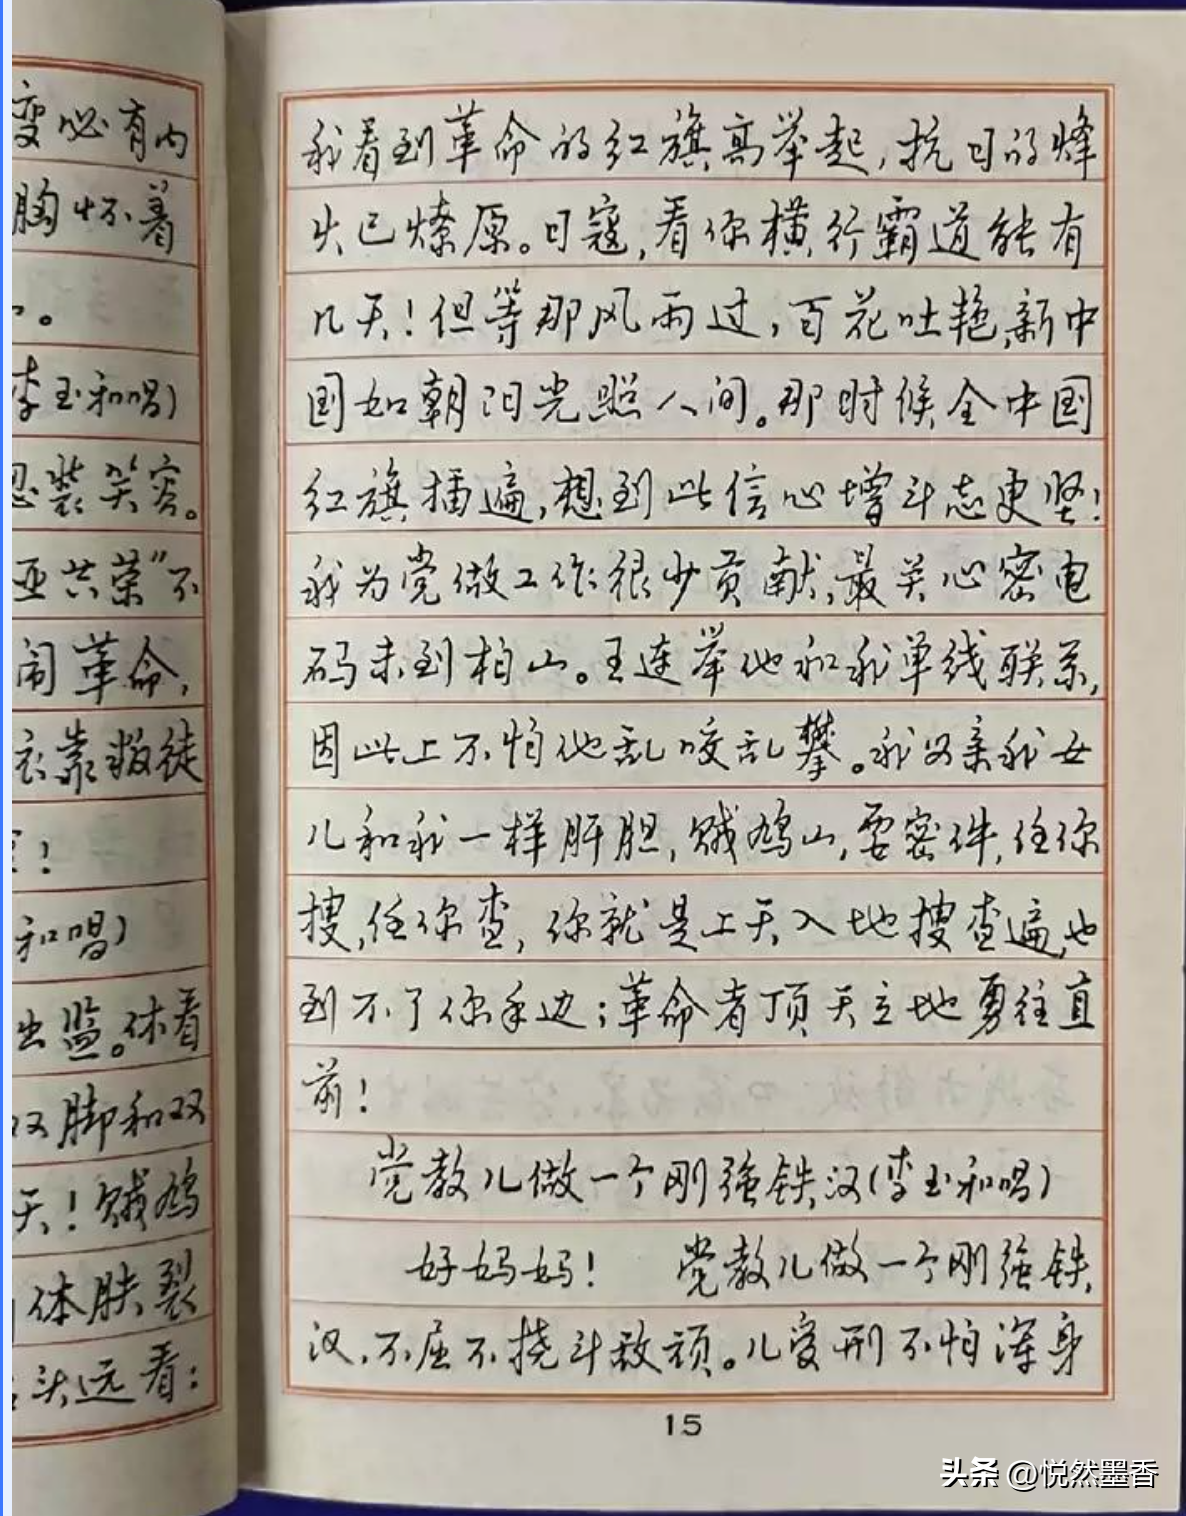 变必有内
胸怀着
。
李玉和唱）
忍装笑容。
亚共荣”不
闹革命，
衣靠叛徒
！
和唱）
出监。休看
双脚和双
天！贼鸠
体肤裂
头远看：
我看到革命的红旗高举起，抗日的烽
火已燎原。日寇，看你横行霸道能有
几天！但等那风雨过，百花吐艳，新中
国如朝阳光照人间。那时候全中国
红旗插遍，想到此信心增斗志更坚！
我为党做工作很少贡献，最关心密电
码未到柏山。王连举他和我单线联系，
因此上不怕他乱咬乱攀。我父亲我女
儿和我一样肝胆，贼鸠山，要密件，任你
搜，任你查，你就是上天入地搜查遍，也
到不了你手边；革命者顶天立地勇往直
前！
党教儿做一个刚强铁汉（李玉和唱）
好妈妈！ 党教儿做一个刚强铁
汉，不屈不挠斗敌顽。儿受刑不怕浑身
15
头条 @悦然墨香